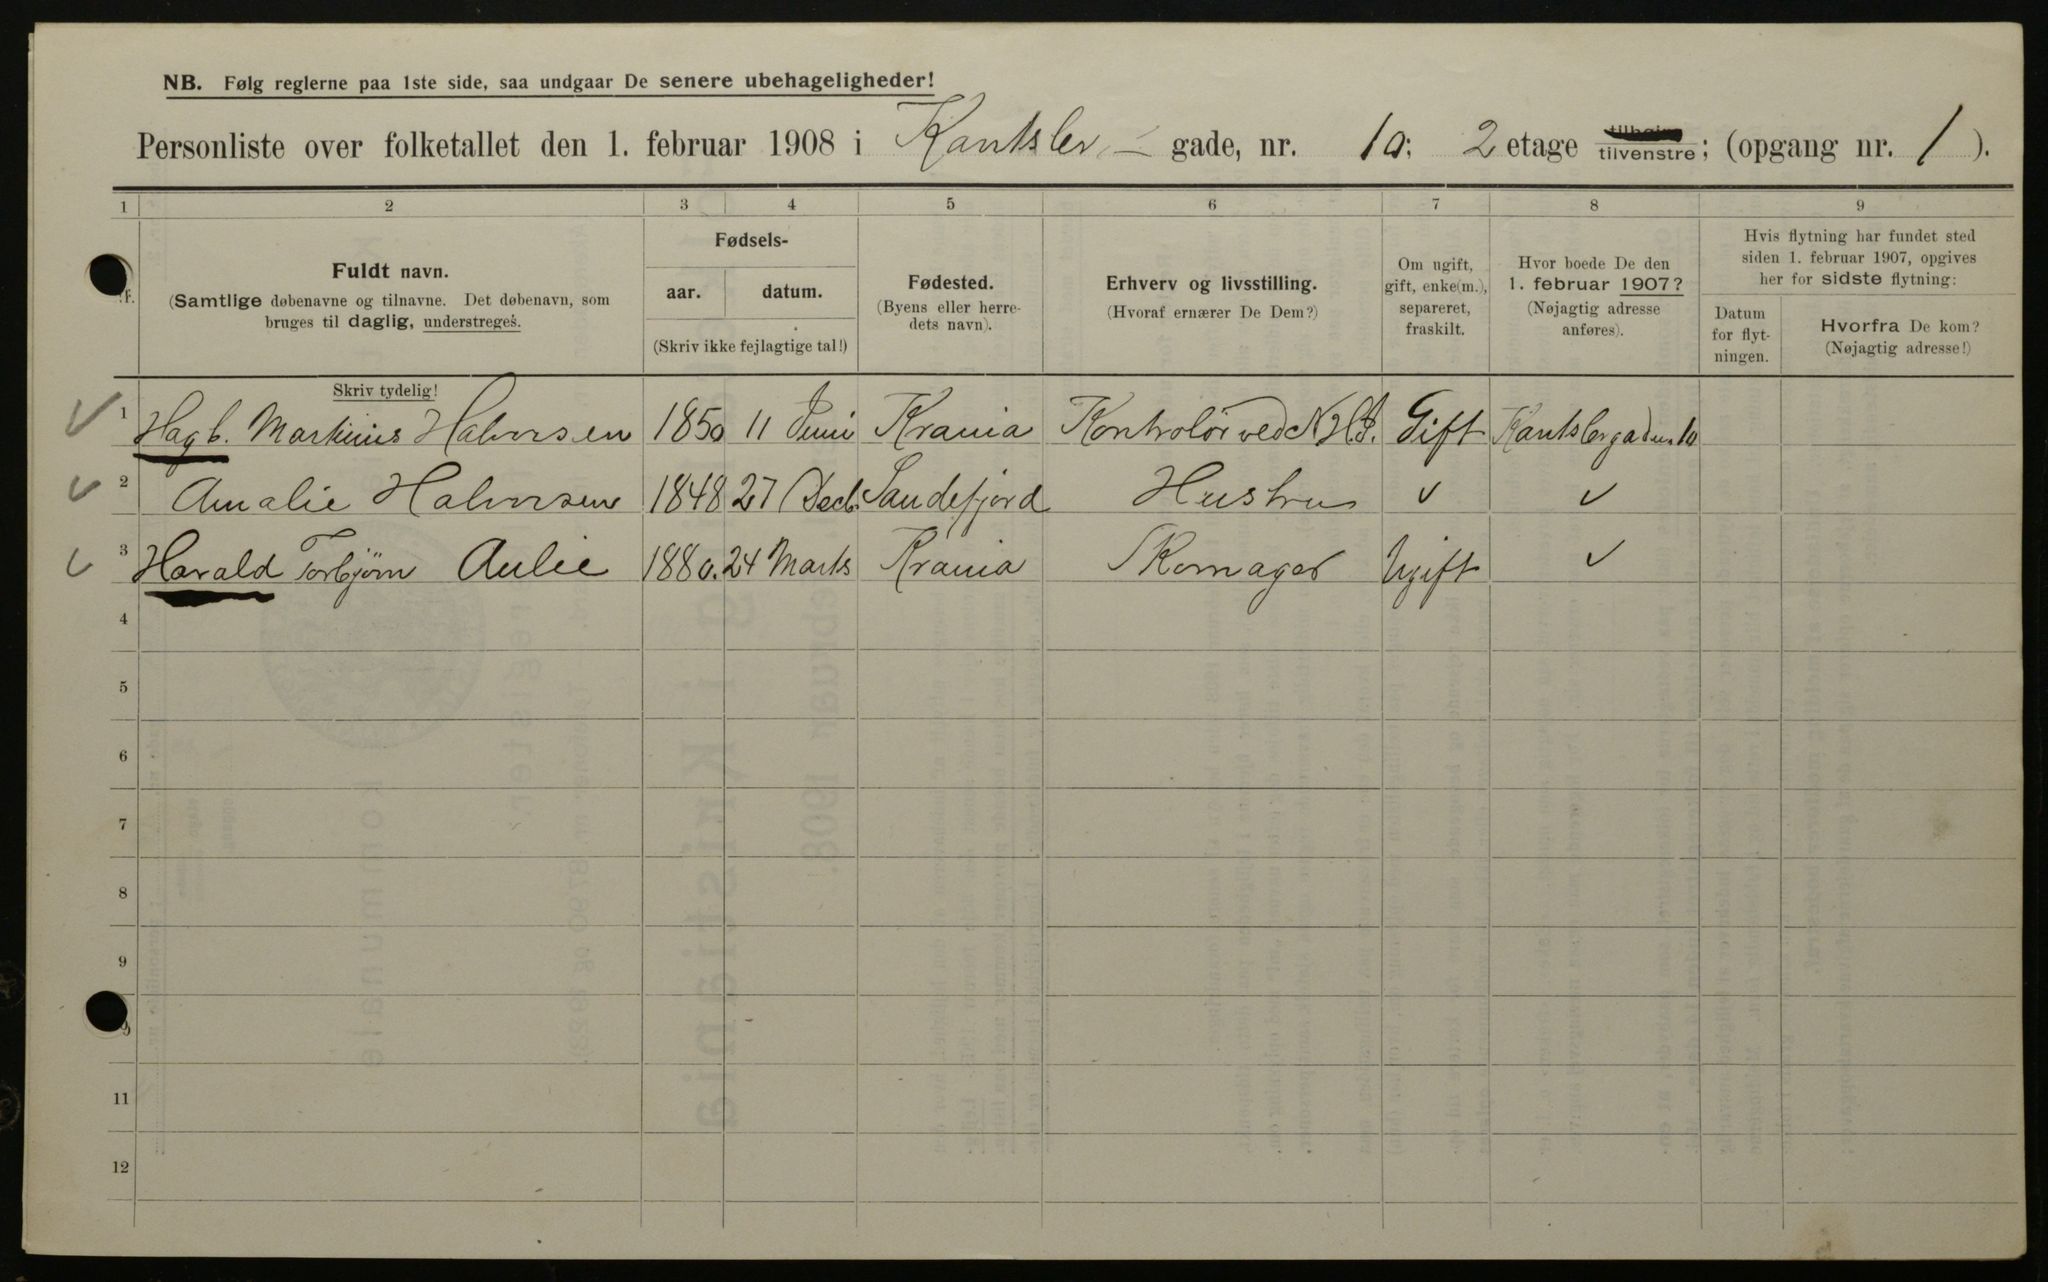 NB. Følg reglerne paa 1ste side, saa undgaar De senere ubehageligheder!
Personliste over folketallet den 1. februar 1908 i Kantsler - gade, nr. 10; 2 etage tilhøire tilvenstre; (opgang nr. 1).
1 2 3 4 5 6 7 8 9
Fuldt navn.
(Samtlige døbenavne og tilnavne. Det døbenavn, som
bruges til daglig, understreges.
Fødsels-
aar. datum.
(Skriv ikke fejlagtige tal!)
Fødested.
(Byens eller herre-
dets navn).
Erhverv og livsstilling.
(Hvoraf ernærer De Dem?)
Om ugift,
gift, enke(m.),
separeret,
fraskilt.
Hvor boede De den
1. februar 1907?
(Nøjagtig adresse
anføres).
Hvis flytning har fundet sted
siden 1. februar 1907, opgives
her for sidste flytning:
Datum
for flyt-
ningen.
Hvorfra De kom?
(Nøjagtig adresse!)
Skriv tydelig!
1 Hagb. Martinius Halvorsen 1850 11 Juni Krania Kontrolør ved Gift Kantslergaden 10
2 Amalie Halvorsen 1848 27 Decb. Sandefjord Hustru √ √
3 Harald Torbjørn Aulie 1880. 24 Marts Krania Skomager Ugift √
4
5
6
7
8
9
9
11
12